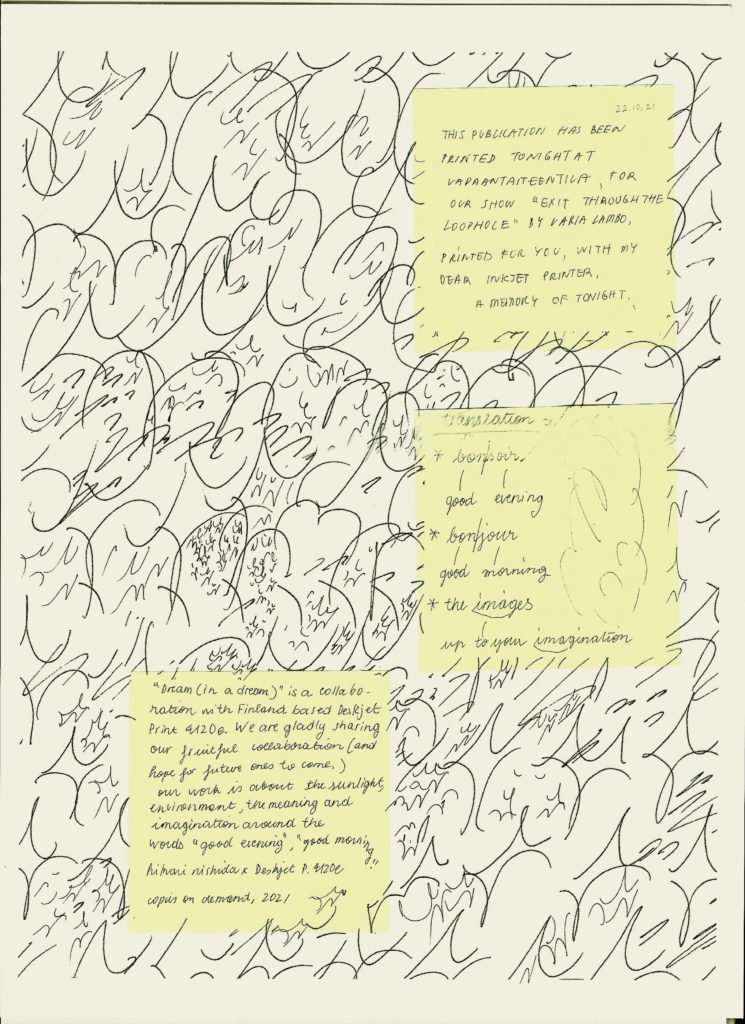 22.10.21
THIS PUBLICATION HAS BEEN
PRINTED TONIGHT AT
VAPAANTAITEENTILA, FOR
OUR SHOW "EXIT THROUGH THE
LOOPHOLE" BY VARIA LAMBO.
PRINTED FOR YOU, WITH MY
DEAR INKJET PRINTER.
A MEMORY OF TONIGHT.
translation
* bonsoir,
good evening
* bonjour
good morning
* the images
up to your imagination
"Dream (in a dream)" is a collabo-
ration with Finland based Deskjet
Print 4120e. We are gladly sharing
our fruitful collaboration (and
hope for future ones to come.)
our work is about the sunlight,
environment, the meaning and
imagination around the
words "good evening", "good morning"!
hikari nishida x Deskjet P. 4120e
copies on demand, 2021